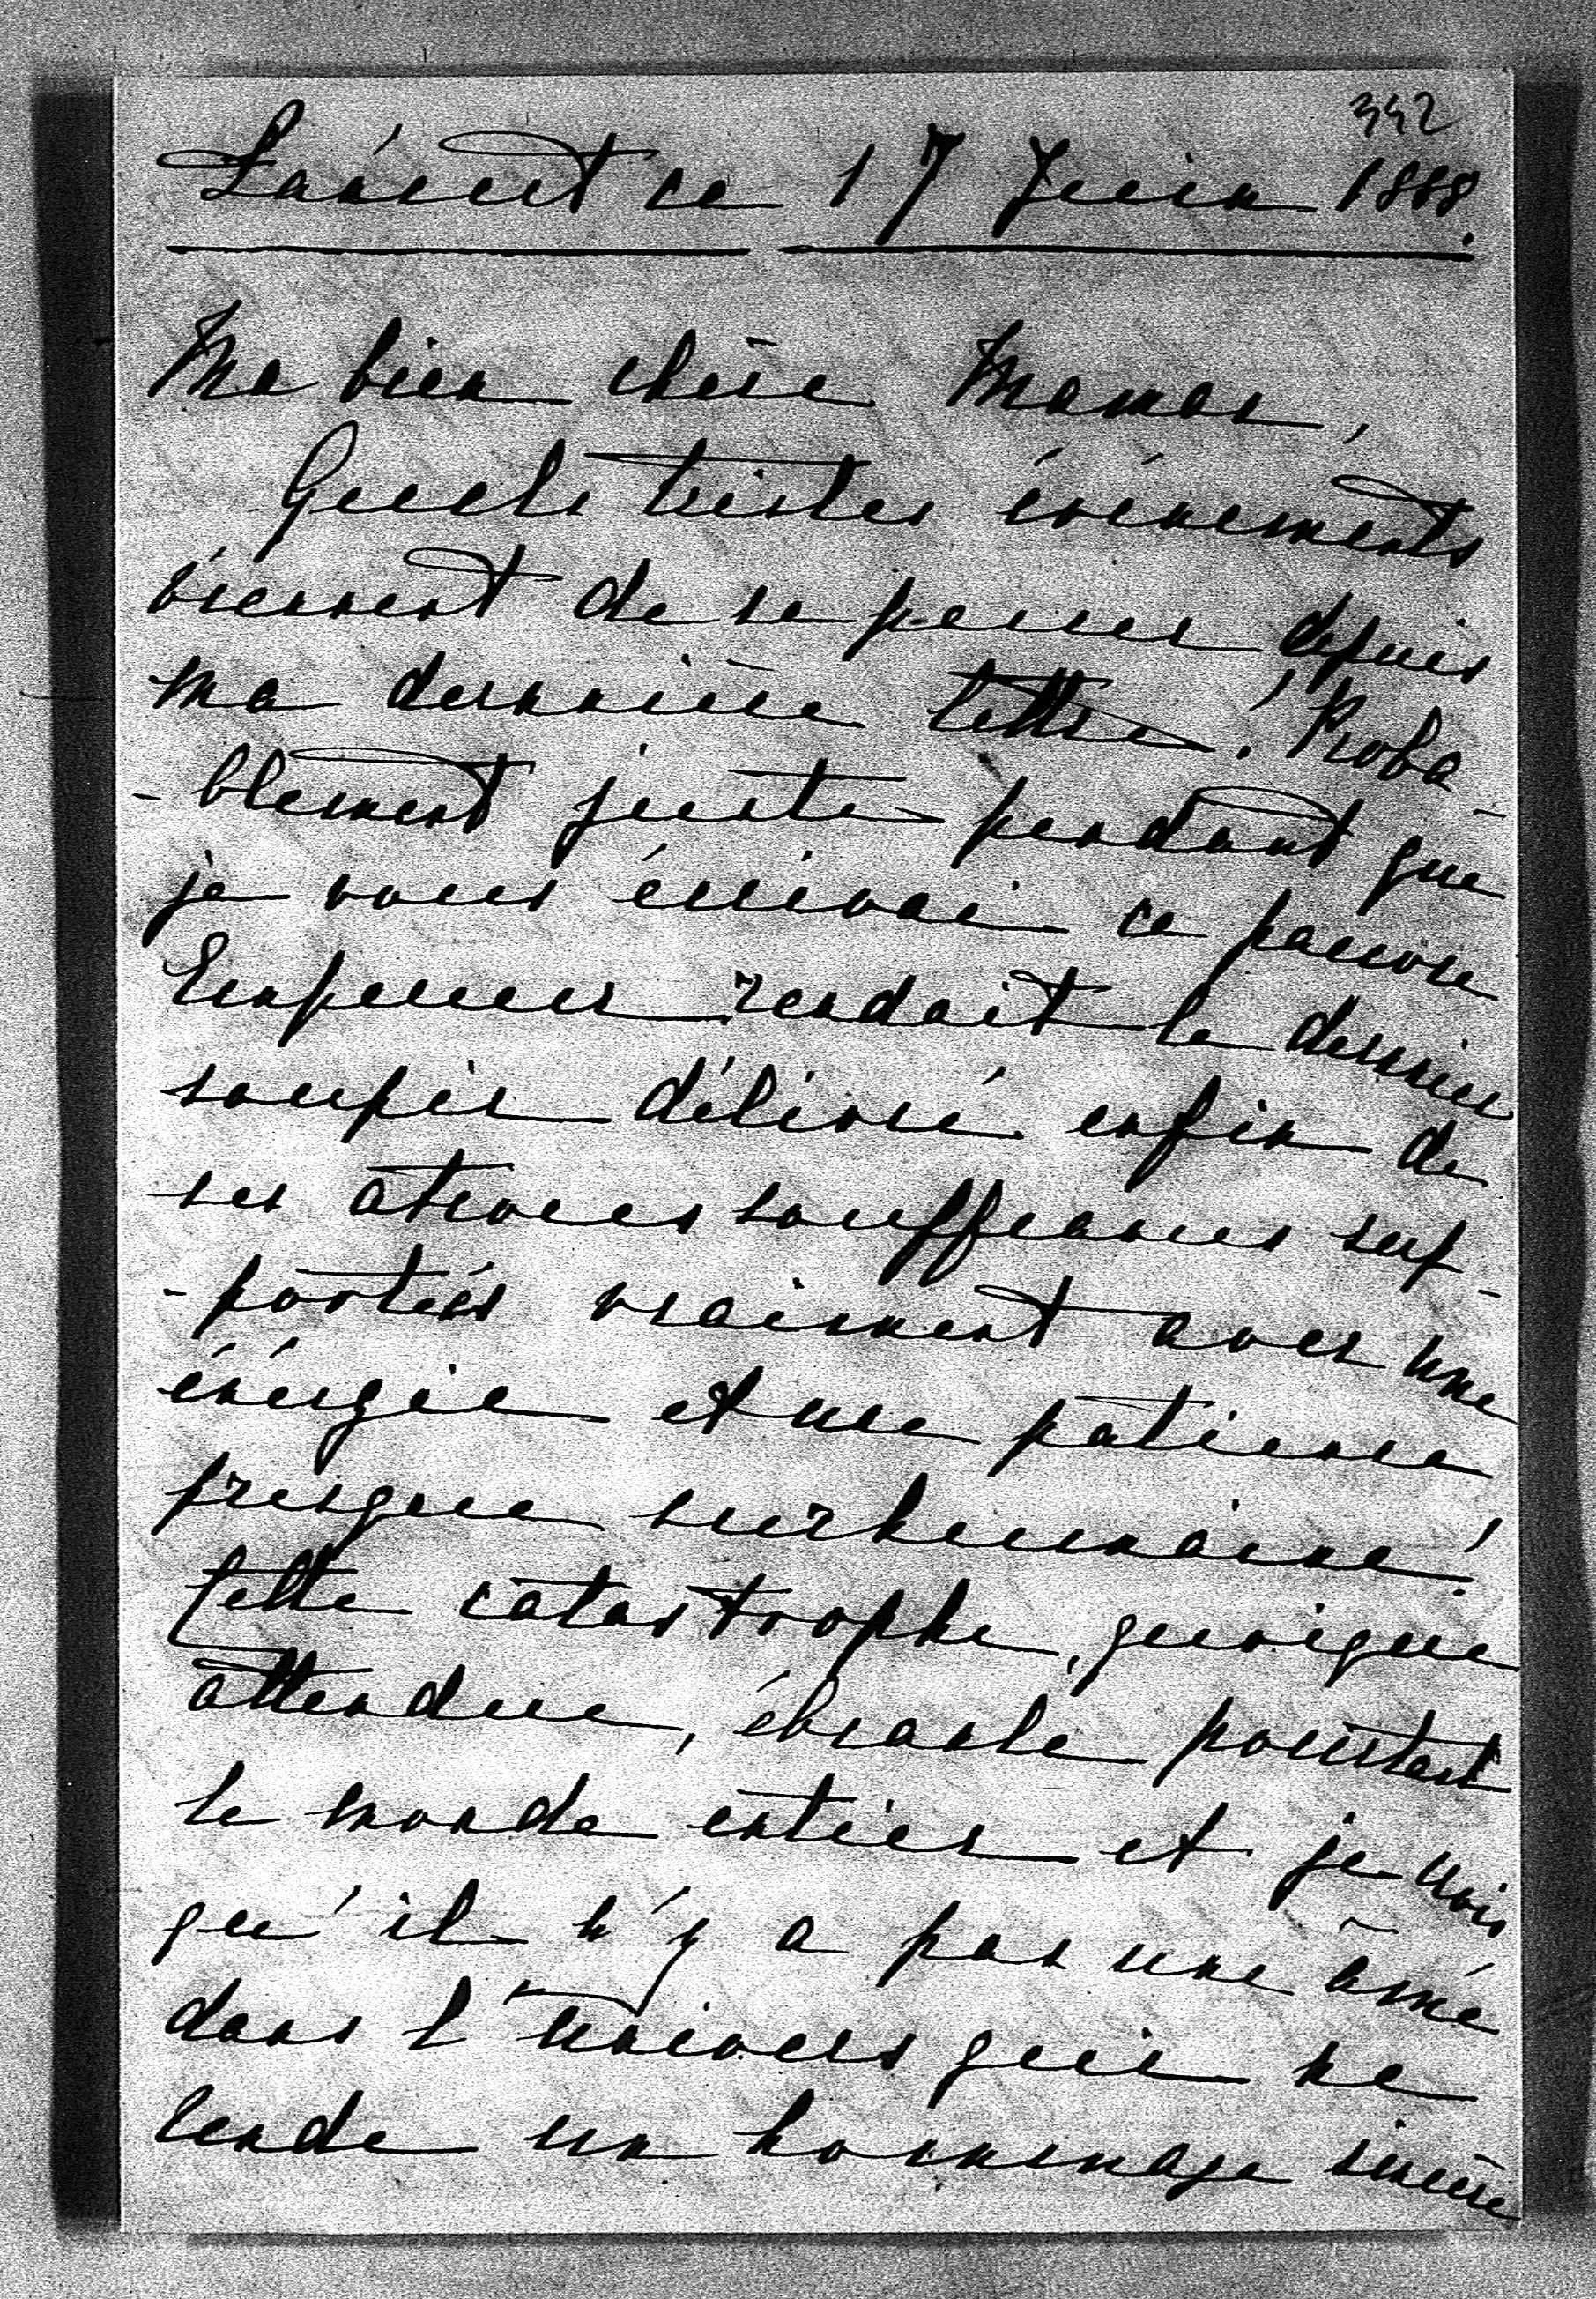 342
Laćut ce 17 Juin 1888.
Ma bien chère Maman,
Quels tristes événements
viennent de se passer depuis
ma dernnière lettre! Proba-
-blement juste pendant que
je vous écrivai ce pauvre
Empereur rendait le dernier
soupir délivré enfin de
ses atroces souffrances sup-
-portées vraiment avec une
énérgie et une patience
presque surhumaine!
Cette catastrophe, quoique
attendue, ébranle pourtant
le monde entier et je crois
qu'il n'y a pas une âme
dans l'univers qui ne
rende un hommage sincère